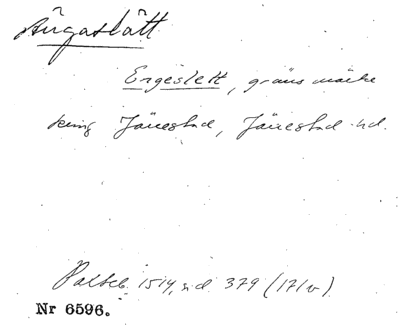 Ängaslätt
Engeslett, gräns märke
kring Jänestad, Jänestad hd.
1514, sid 379 (171v).
Nr 6596.